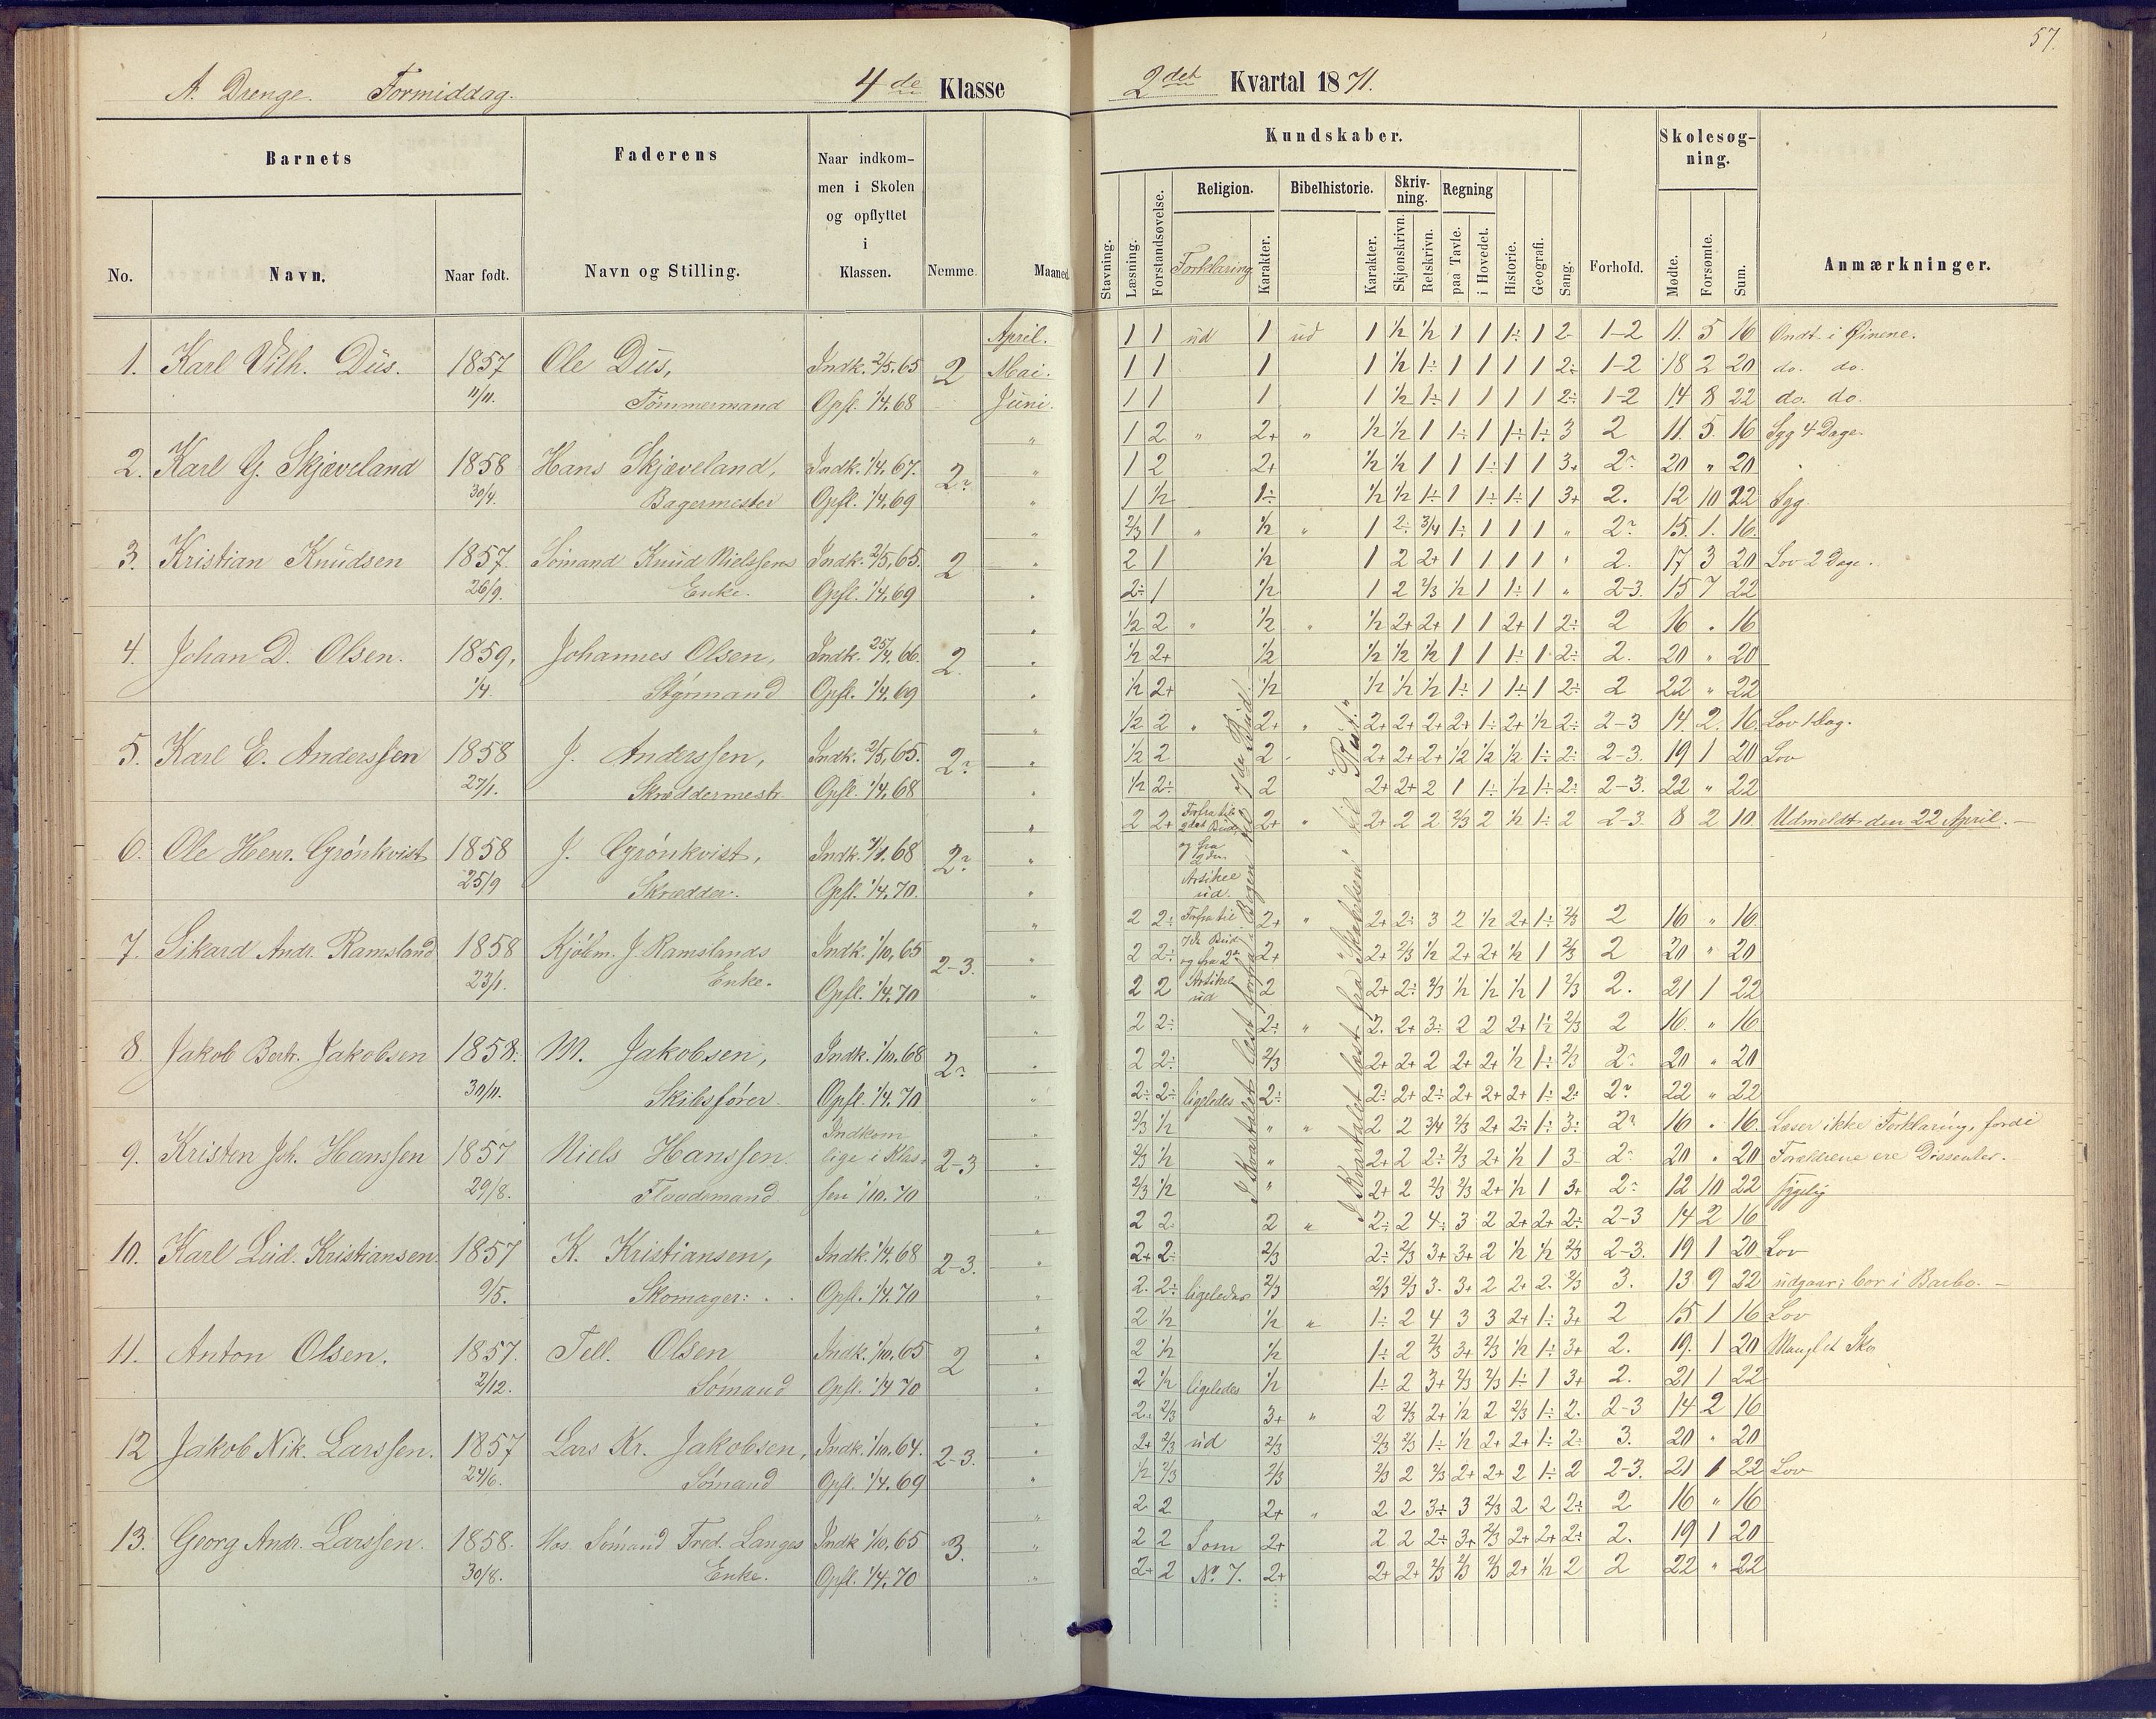 57.
A. Drenge. Formiddag. 4de Klasse
2det Kvartal 1871.
Barnets
Faderens
Naar indkommen i Skolen og opflyttet i Klassen.
No. Navn. Naar født. Navn og Stilling. Nemme. Maaned.
Kundskaber.
Skolesøgning.
Religion. Bibelhistorie. Skrivning. Regning
Stavning. Læsning. Forstandsøvelse. Forklaring Karakter. Karakter. Skjønskrivn. Retskrivn. paa Tavle. i Hovedet. Historie. Geografi. Sang. Forhold. Mødte. Forsømte. Sum. Anmærkninger.
April. 1 1 ud 1 ud 1 ½ ½ 1 1 1÷ 1 2 1-2 11. 5 16 Ondt i Øinene.
1. Karl Vilh. Dus. 1857 Ole Dus, Indk. 2/5. 65 2 Mai. 1 1 1 1 ½ 1÷ 1 1 1 1 2÷ 1-2 18 2 20 do. do.
11/11. Tømmermand Opfl. 1/4. 68 Juni. 1 1 1 1 ½ 1÷ 1 1 1 1 2÷ 1-2 14 8 22 do. do.
" 1 2 " 2+ " ½ ½ 1 1÷ 1 1÷ 1÷ 3 2 11. 5. 16 Syg 4 Dage.
2. Karl G. Skjæveland 1858 Hans Skjæveland, Indk. 1/4. 67. 2? " 1 2 2+ ½ ½ 1 1 1÷ 1 1 3+ 2? 20 " 20
30/4. Bagermester Opfl. 1/4. 69 " 1 ½ 1÷ ½ ½ 1÷ 1 1÷ 1÷ 1 3+ 2. 12 10 22 Syg.
" 2/3 1 " ½ " 1 2÷ 3/4 1÷ 1 1 1 " 2? 15. 1. 16.
3. Kristian Knudsen 1857. Sømand Knud Nielssens Indk. 2/5. 65. 2 " 2 1 ½ 1 2 2+ 1 1 1 1 " 2. 17 3 20 Lov 2 Dage.
26/9. Enke. Opfl. 1/4. 69 " 2÷ 1 ½ 1 2 2/3 ½ 1 1÷ 1 " 2-3. 15 7 22
" ½ 2 " ½ " ½ 2+ 2+ 1 1 2+ 1 2÷ 2 16 " 16
4. Johan D. Olsen. 1859, Johannes Olsen, Indk. 25/4. 66. 2. " ½ 2+ ½ ½ ½ ½ 1 1 1÷ 1 2÷ 2. 20 " 20
1/4. Styrmand Opfl. 1/4. 69 " ½ 2+ ½ ½ ½ ½ 1÷ 1 1÷ 1 2÷ 2 22 " 22
" ½ 2 " 2+ " 2+ 2+ 2+ 2+ 1÷ 2+ ½ 2÷ 2-3 14. 2. 16. Lov 1 Dag.
5. Karl E. Anderssen 1858 J. Anderssen, Indk. 2/5. 65. 2? " ½ 2 2 2+ 2+ 2+ ½ ½ ½ 1÷ 2÷ 2-3. 19 1 20 Lov
27/1. Skreddermestr Opfl. 1/4. 68 " ½ 2÷ 2 2+ 2+ 2 1 1÷ ½ 1÷ 2÷ 2-3. 22 " 22
" 2 2+ Forfra til 2det Bud, og fra 2den Artikel ud. 2+ " 2+ 2 2 2/3 2 ½ 1÷ 2 2-3. 8 2 10 Udmeldt den 22 April. —
6. Ole Henr. Grønkvist 1858 J. Grønkvist, Indk. 68 2? "
25/9 Skrædder. Opfl. 1/4. 70. "
" 2 2÷ Forfra til 7de Bud og fra 2den Artikel ud 2+ " 2+ 2÷ 3 2 ½ 2+ 1÷ 2/3 2 16 " 16.
7. Sikard Andr. Ramsland 1858 Kjøbm. J. Ramslands Indk. 1/10. 65 2-3. " 2 2÷ 2+ 2+ 2/3 ½ 2+ 2+ ½ 1 2/3 2 20 " 20
23/1. Enke. Opfl. 1/4. 70 " 2 2 2 2+ 2÷ 2/3 ½ ½ ½ 1 2/3 2. 21 1 22
2 2÷ 2÷ " 2. 2+ 3÷ 2 2 2+ 1½ 2/3 2 16. " 16
8. Jakob Bert. Jakobsen 1858. M. Jakobsen, Indk. 1/10. 68 2? " 2 2÷ 2/3 2+ 2+ 2 2+ 2+ ½ 1÷ 2/3 2? 20 " 20
30/11. Skibsfører. Opfl. 1/4. 70 " 2÷ 2÷ ligeledes 2÷ 2÷ 2÷ 2÷ 2+ 2+ 2+ 1÷ 2÷ 2? 22 " 22
" 2/3 ½ " " 2 2 3/4 2/3 2+ 2÷ 1÷ 3÷ 2? 16 " 16. Læser ikke Forklaring, fordi
9. Kristen Joh. Hanssen 1857 Niels Hanssen. Indkom lige i Klassen 1/10. 70 2-3 " 2/3 ½ " 2+ 2 2÷ 2/3 2+ ½ 1 3 2? 20 " 20 Forældrene ere Dissenter.
29/8. Flaademand " 2/3 ½ " 2+ 2 2/3 2/3 2+ ½ 1 3+ 2? 12 10 22 sygelig
" 2 2 2 " 2÷ 2 4÷ 3 2 2+ 2+ 2÷ 2-3 14 2 16
10. Karl Lud. Kristiansen. 1857 K. Kristiansen, Indk. 1/4. 68 2-3. " 2+ 2÷ 2/3 2÷ 2/3 3+ 3+ 2 ½ ½ 2/3 2-3. 19 1 20 Lov
9/5. Skomager. Opfl. 1/4. 70 " 2. 2÷ ligeledes 2/3 2/3 2/3 3. 3+ 2 2+ 2. 2/3 3. 13 9 22 udgaar: bor i Barbo. —
" 2 ½ ½ " 1÷ 2 4 3 3 2+ 1÷ 3+ 2 15 1 16 Lov
11. Anton Olsen. 1857. Tell. Olsen Indk. 1/10. 65 2 " 2 ½ ½ 1÷ 2 2/3 3+ 2/3 ½ 1÷ 3+ 2. 19. 1 20 Manglet Sko
2/12. Sømand Opfl. 1/4 70 " 2 ½ ligeledes ½ 1÷ 2 3+ 2/3 2/3 1÷ 1 3+ 2. 21 1 22
" 2÷ 2/3 3+ " 2 2/3 2+ ½ 2 2/3 1÷ 2. 2-3 14 2 16
12 Jakob Nik. Larssen. 1857 Lars Kr. Jakobsen, Indk. 1/10. 64. 2-3. " 2+ 2/3 ud 2/3 2/3 2/3 1÷ ½ 2+ 2+ 1÷ 2÷ 3. 20 " 20
24/6. Sømand Opfl. 1/4. 69 " ½ 2/3 2/3 2/3 2 2/3 2+ 2+ 2 1÷ 2 2-3. 21 1 22 Lov
" 2 2 2+ " 2 2 3÷ 3 2/3 2 2 2÷ 2 16 " 16
13. Georg Andr. Larssen. 1858. Hos Sømand Fred. Langes Indk. 1/10. 65 3. " 2 2 Som 2+ 2 2 2÷ 3+ 2/3 2+ 2+ 2÷ 2. 19 1 20
30/8. Enke. Opfl. 1/4. 70 " 2+ 2 No. 7. 2+ 2+ 2+ 2/3 2/3 2/3 2+ ½ 2 2 22 " 22
I Kvartalet læst forfra i Bogen til 7de Bud.
I Kvartalet læst fra "Skabelsen" til "Rut."